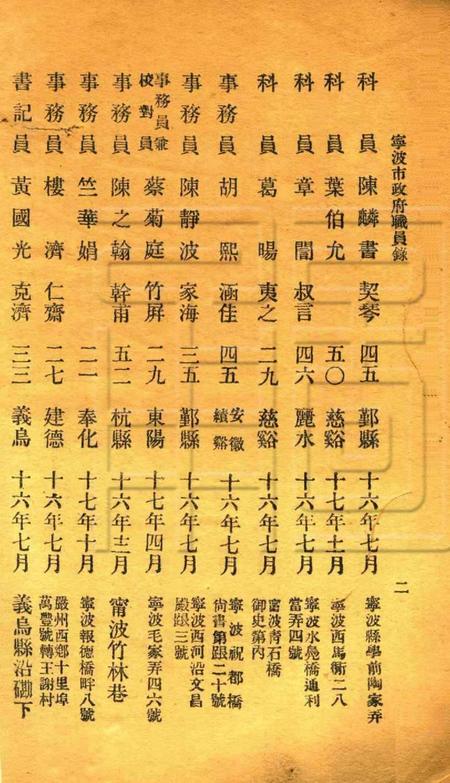 寧波市政府職員錄
二
科員 陳麟書 契琴 四五 鄞縣 十六年七月 寧波縣學前陶家弄
科員 葉伯允 五〇 慈谿 十七年十一月 寧波西馬衖二八
科員 章誾 叔言 四六 麗水 十六年七月 寧波水鳧橋通利當弄四號
科員 葛暘 夷之 二九 慈谿 十六年七月 甯波青石橋御史第內
事務員 胡熙 涵佳 四五 安徽績谿 十六年七月 寧波祝都橋尚書第跟二十號
事務員 陳靜波 家海 三五 鄞縣 十六年七月 寧波西河沿文昌殿跟三號
事務員兼校對員 蔡菊庭 竹屏 二九 東陽 十七年四月 寧波毛家弄四六號
事務員 陳之翰 幹甫 五二 杭縣 十六年十二月 甯波竹林巷
事務員 竺華娟 二一 奉化 十七年十月 寧波報德橋畔八號
事務員 樓濟 仁齋 二七 建德 十六年七月 嚴州西鄉十里埠萬豐號轉王謝村
書記員 黃國光 克濟 三三 義烏 十六年七月 義烏縣沿磡下